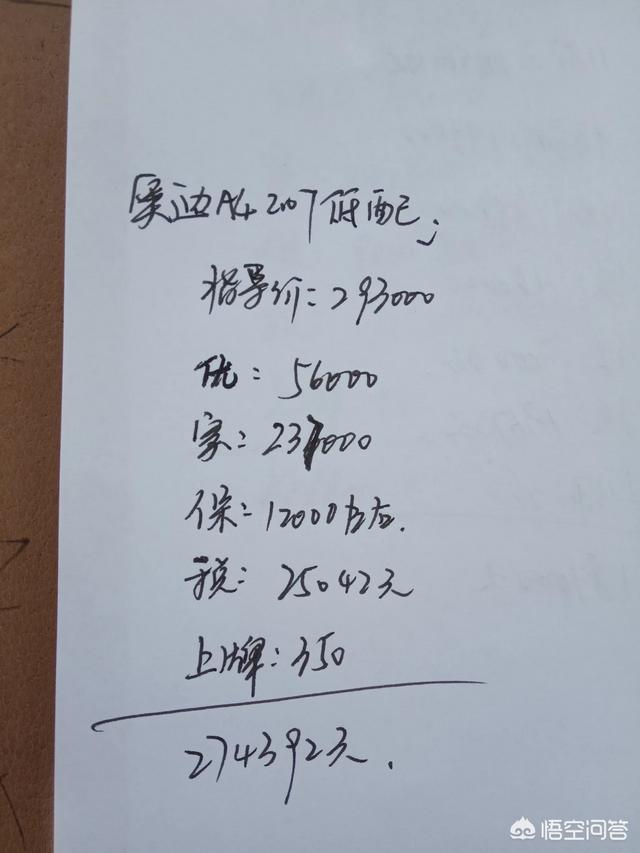 奥迪A4 2.0T 低配:
指导价:293000
优:56000
实:237000
保:12000左右.
税:25042元
上牌:350
274392元.
悟空问答